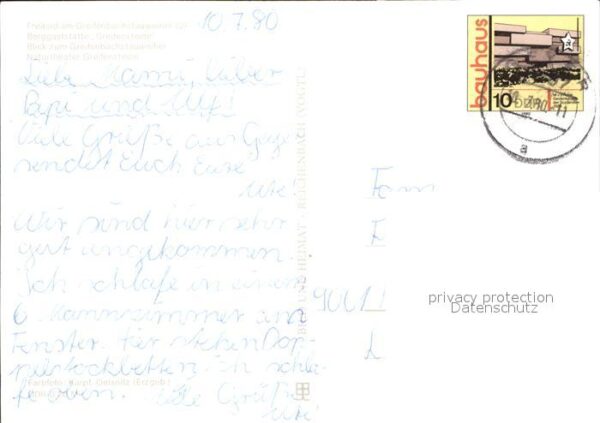 Freibad am Greifenbachstauweiher (2)
10.7.80
Berggaststätte "Greifensteine"
Blick zum Greifenbachstauweiher
Naturtheater Greifensteine
Liebe Mami, lieber
Papi und Ulf!
Viele Grüße aus Geyer
sendet Euch Eure
Ute!
Wir sind hier sehr
gut angekommen.
Ich schlafe in einem
6 Mannzimmer am
Fenster. Hier stehen Dop-
pelstockbetten. Ich schla-
fe oben. Viele Grüße
Ute!
BILD UND HEIMAT · REICHENBACH
Fam
F
9061
bauhaus
10
DDR
privacy protection
Datenschutz